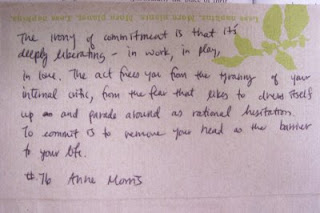 Less napkins. More plants. More planet. Less napkins.
The irony of commitment is that it's
deeply liberating - in work, in play,
in love. The act frees you from the tyranny of your
internal critic, from the fear that likes to dress itself
up and parade around as rational hesitation.
To commit is to remove your head as the barrier
to your life.
#76 Anne Morris